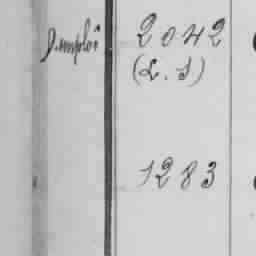 D. emploi 2042
(L. S)
1283